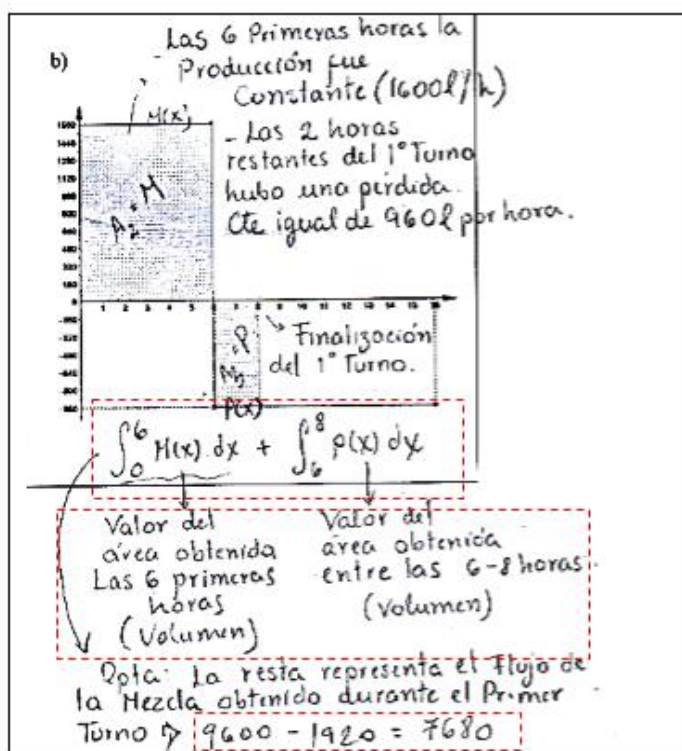 b)
Las 6 Primeras horas la
Producción fue
Constante (1600l/h)
M(x)
- Las 2 horas
restantes del 1° Turno
hubo una pérdida
Cte igual de 960l por hora.
M
P
P(x)
1 2 3 4 5 6 7 8 9 10 11 12 13 14 15 16
Finalización
del 1° Turno.
∫₀⁶ M(x) dx + ∫₆⁸ P(x) dx
Valor del
área obtenida
Las 6 primeras
horas
(Volumen)
Valor del
área obtenida
entre las 6-8 horas
(Volumen)
Rpta: La resta representa el Flujo de
la Mezcla obtenido durante el Primer
Turno ⇒ 9600 - 1920 = 7680